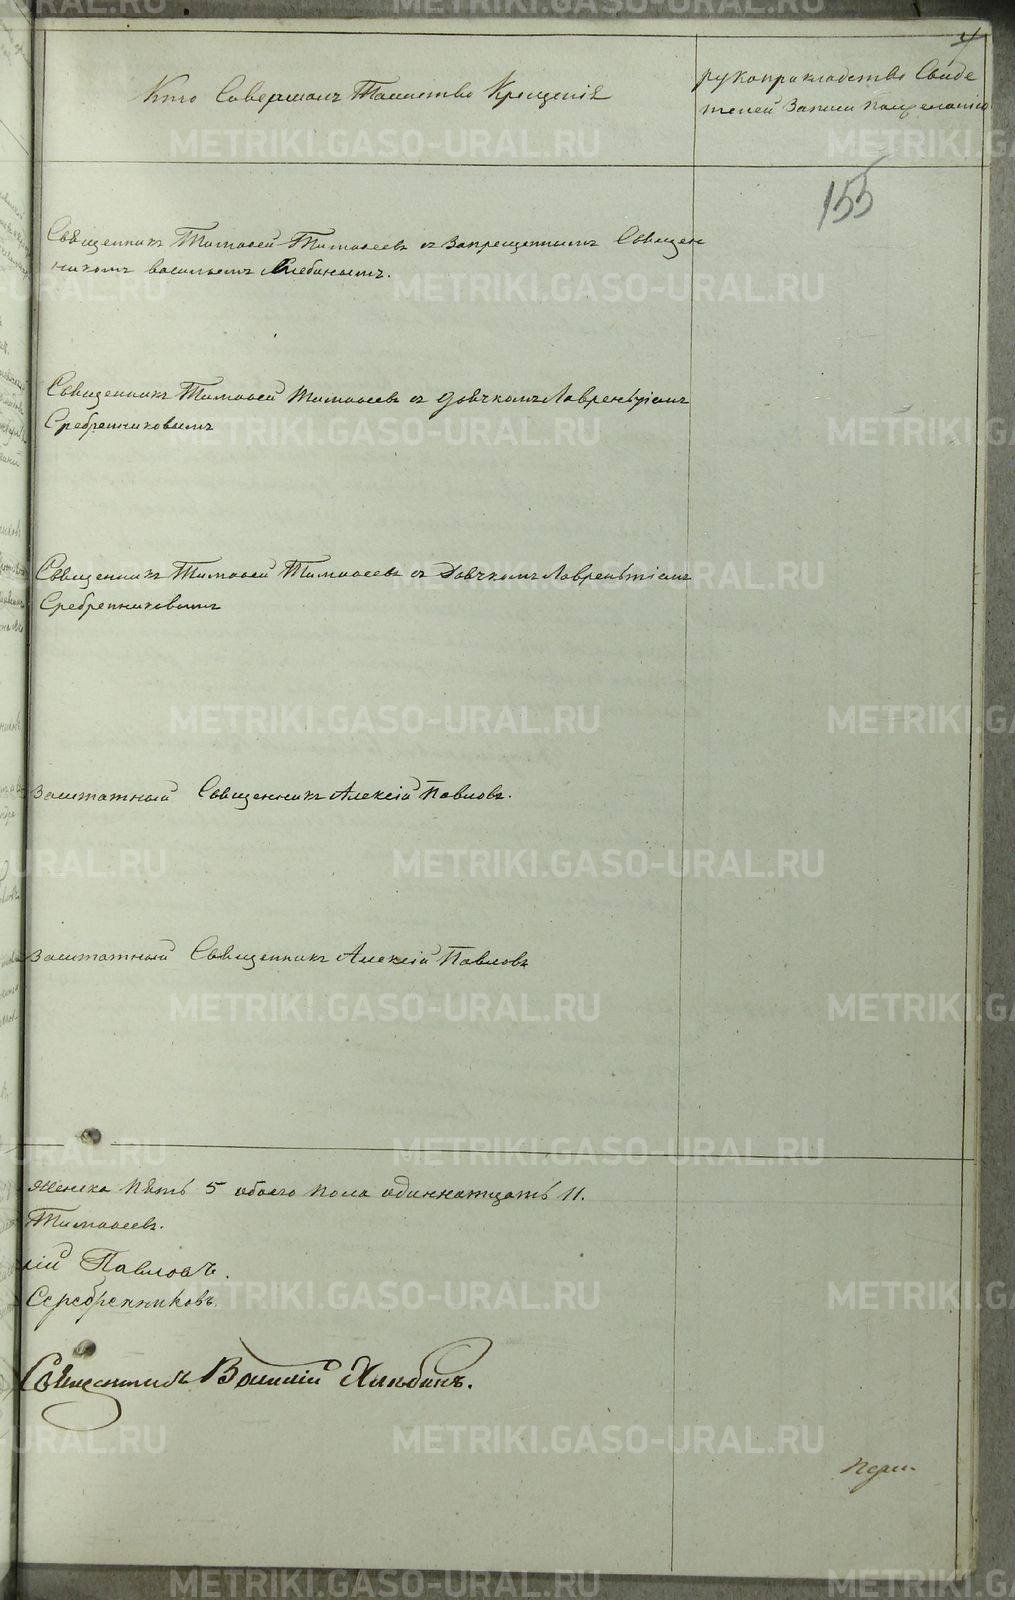 4
Кто Совершалъ Таинство Крещенія
рукоприкладство Свиде
телей Записи по желанію
155
Священникъ Тимофей Тимофеевъ съ запрещеннымъ Священ
никомъ васильемъ Хлебинымъ.
Священникъ Тимофей Тимофеевъ съ дьячкомъ Лаврентіемъ
Сребренниковымъ
Священникъ Тимофей Тимофеевъ съ Дьячкомъ Лаврентіемъ
Сребренниковымъ
Заштатный Священникъ Алексій Павловъ.
Заштатный Священникъ Алексій Павловъ
женска пять 5 обоего пола одиннатцать 11.
Тимофеевъ.
сій Павловъ.
Серебренниковъ.
Священникъ Василій Хлѣбинъ.